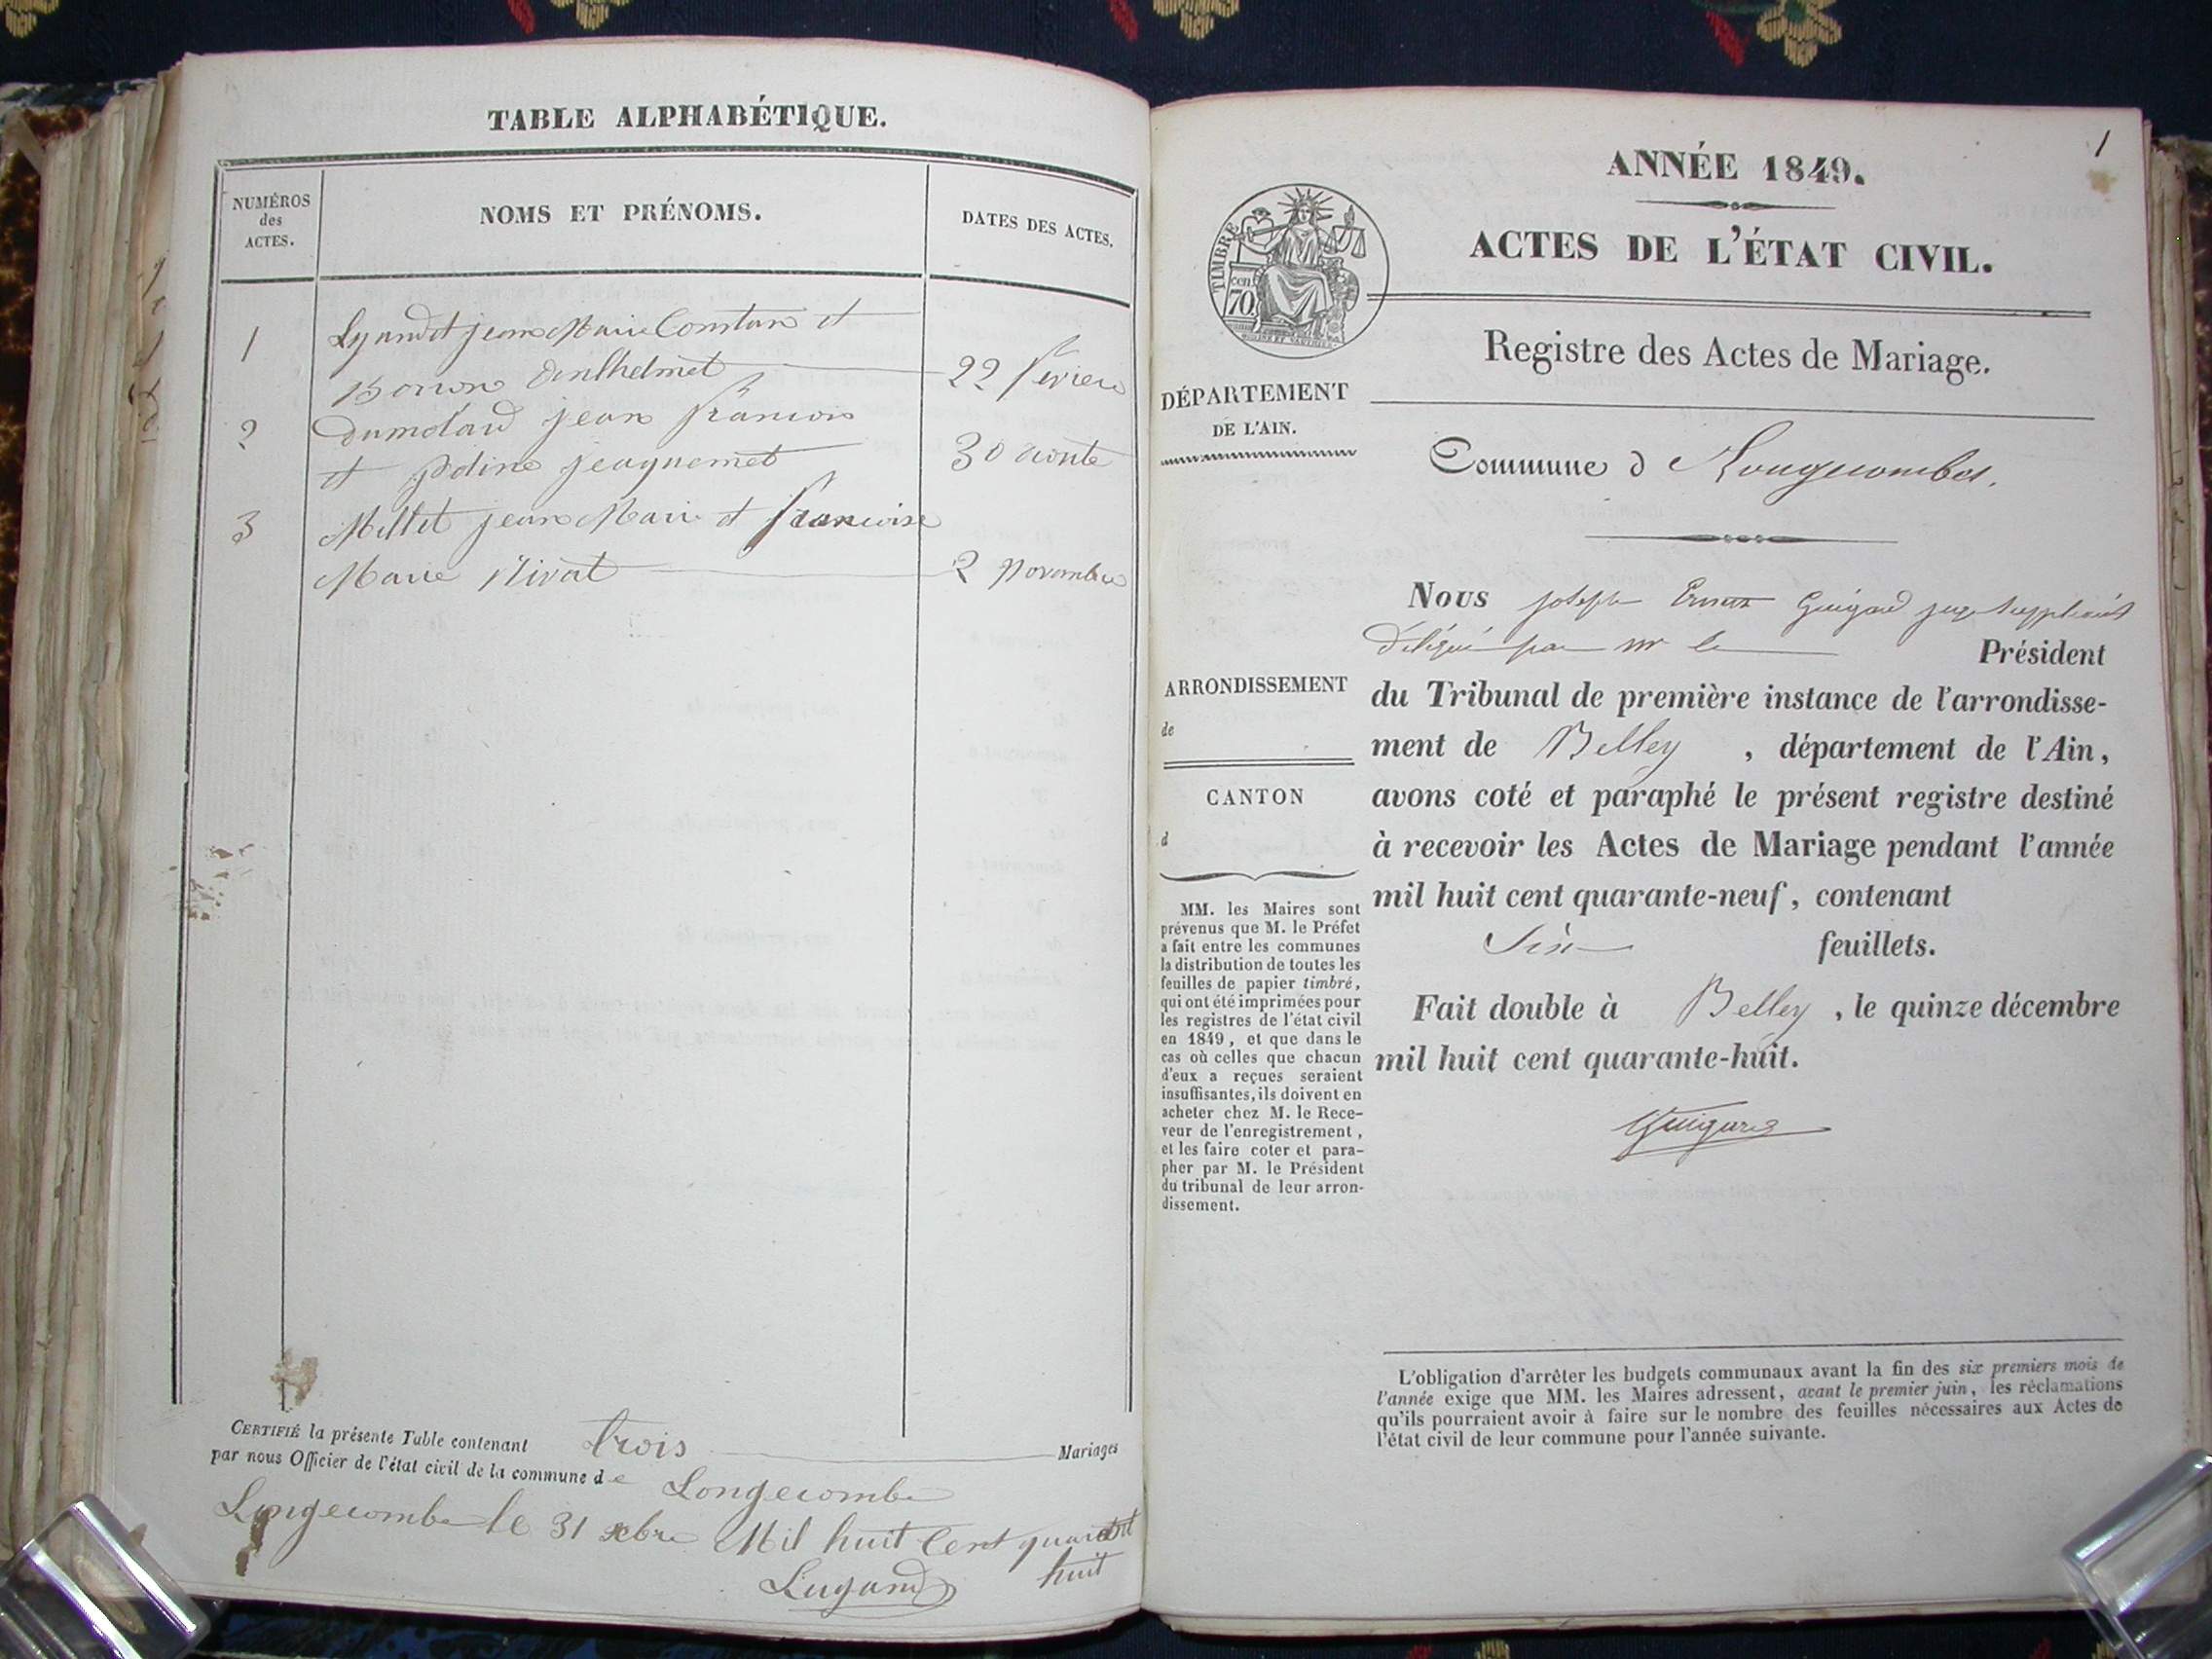 TABLE ALPHABÉTIQUE.
NUMÉROS
des
ACTES.
NOMS ET PRÉNOMS.
DATES DES ACTES.
1
jean Marie Constan et
anthelmet
22 fevrier
2
Dumolard jean francois
et jeaquemet
30 aoute
3
Millet jean Marie et francoise
Marie Nivat
2 Novembre
CERTIFIÉ la présente Table contenant trois Mariages
par nous Officier de l'état civil de la commune de Longecombe
Longecombe le 31 xbre Mil huit Cent quarante
huit
Lugand
1
ANNÉE 1849.
TIMBRE
cen.
70
ACTES DE L'ÉTAT CIVIL.
Registre des Actes de Mariage.
DÉPARTEMENT
DE L'AIN.
Commune d Longecombe.
Nous joseph Ernest Guigard juge suppléant
délégué par mr le Président
ARRONDISSEMENT
de
du Tribunal de première instance de l'arrondisse-
ment de Belley , département de l'Ain,
CANTON
d
avons coté et paraphé le présent registre destiné
à recevoir les Actes de Mariage pendant l'année
mil huit cent quarante-neuf, contenant
Six feuillets.
Fait double à Belley , le quinze décembre
mil huit cent quarante-huit.
Guigard
MM. les Maires sont
prévenus que M. le Préfet
a fait entre les communes
la distribution de toutes les
feuilles de papier timbré,
qui ont été imprimées pour
les registres de l'état civil
en 1849, et que dans le
cas où celles que chacun
d'eux a reçues seraient
insuffisantes, ils doivent en
acheter chez M. le Rece-
veur de l'enregistrement,
et les faire coter et para-
pher par M. le Président
du tribunal de leur arron-
dissement.
L'obligation d'arrêter les budgets communaux avant la fin des six premiers mois de
l'année exige que MM. les Maires adressent, avant le premier juin, les réclamations
qu'ils pourraient avoir à faire sur le nombre des feuilles nécessaires aux Actes de
l'état civil de leur commune pour l'année suivante.